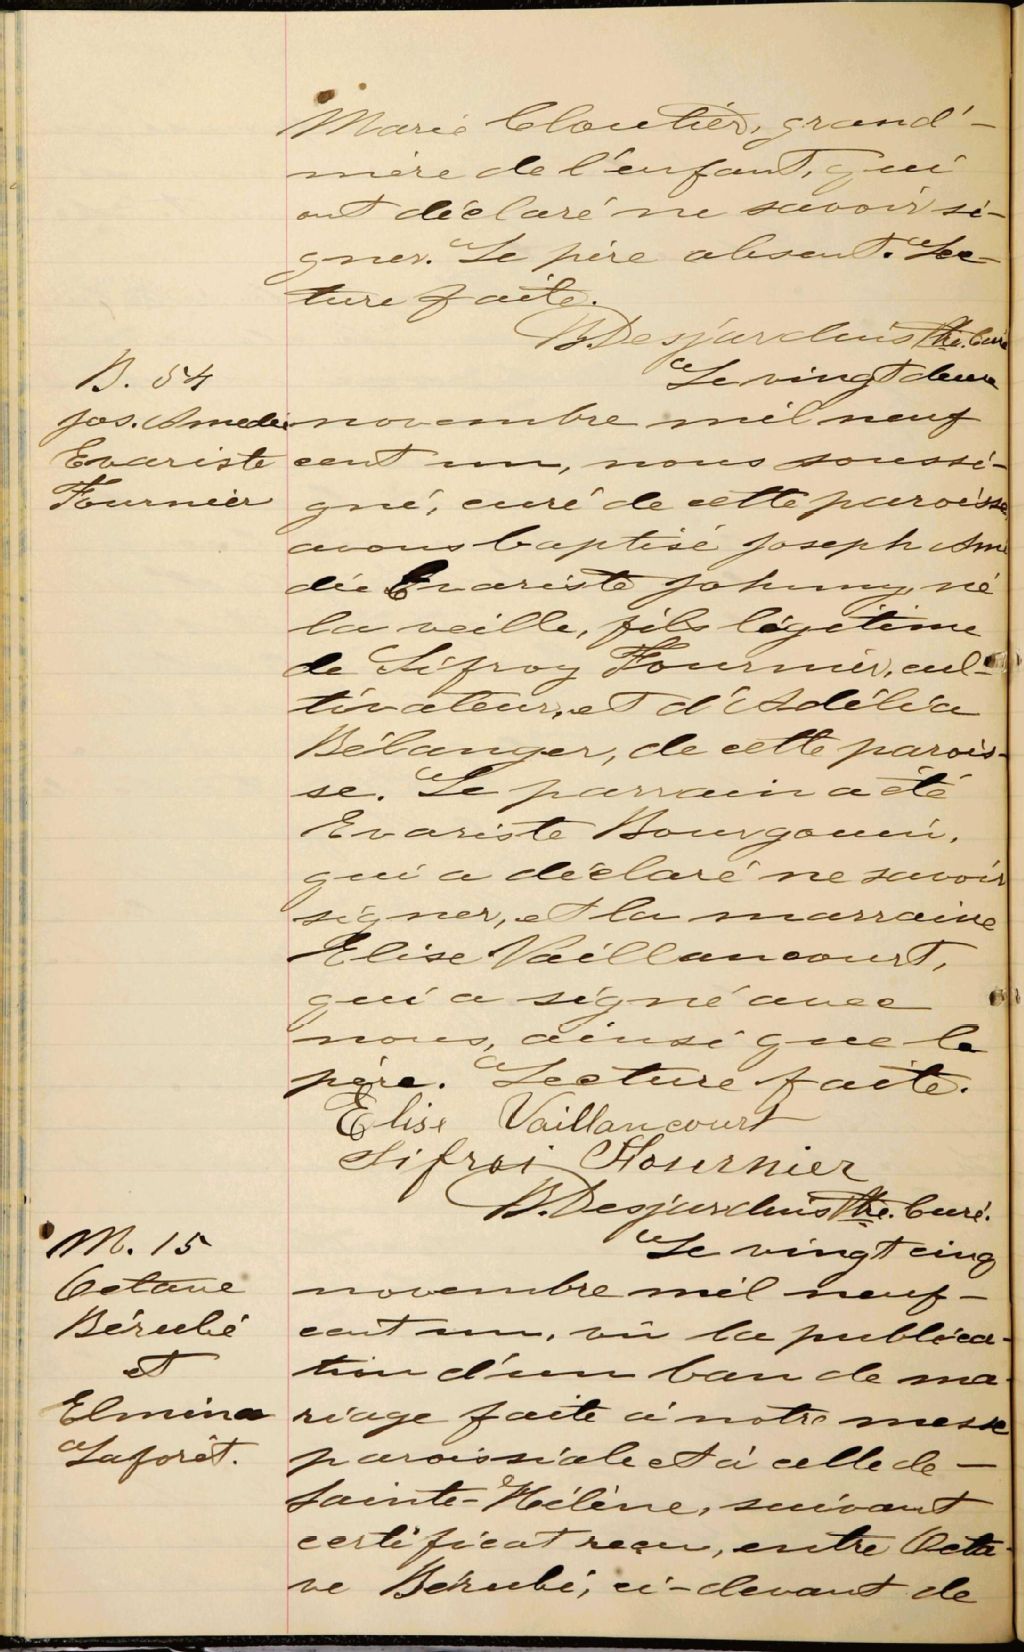 Marie Cloutier, grand'-
mère de l'enfant, qui
ont déclaré ne savoir si-
gner. Le père absent. Lec-
ture faite.
B. Desjardins Ptre. Curé
B. 54
Jos. Amedée
Evariste
Fournier
Le vingt deux
novembre mil neuf
cent un, nous soussi-
gné, curé de cette paroisse,
avons baptisé Joseph Amé
dée Evariste Johnny, né
la veille, fils légitime
de Sifroy Fournier, cul-
tivateur, et d'Adélia
Bélanger, de cette parois-
se. Le parrain a été
Evariste Bourgouin,
qui a déclaré ne savoir
signer, et la marraine
Elise Vaillancourt,
qui a signé avec
nous, ainsi que le
père. Lecture faite.
Elise Vaillancourt
Sifroi Fournier
B. Desjardins Ptre. Curé.
M. 15
Octave
Bérubé
et
Elmina
Laforêt.
Le vingt cinq
novembre mil neuf-
cent un, vû la publica-
tion d'un ban de ma-
riage faite à notre messe
paroissiale et à celle de -
Sainte-Hélène, suivant
certificat reçu, entre Octa-
ve Bérubé, ci-devant de